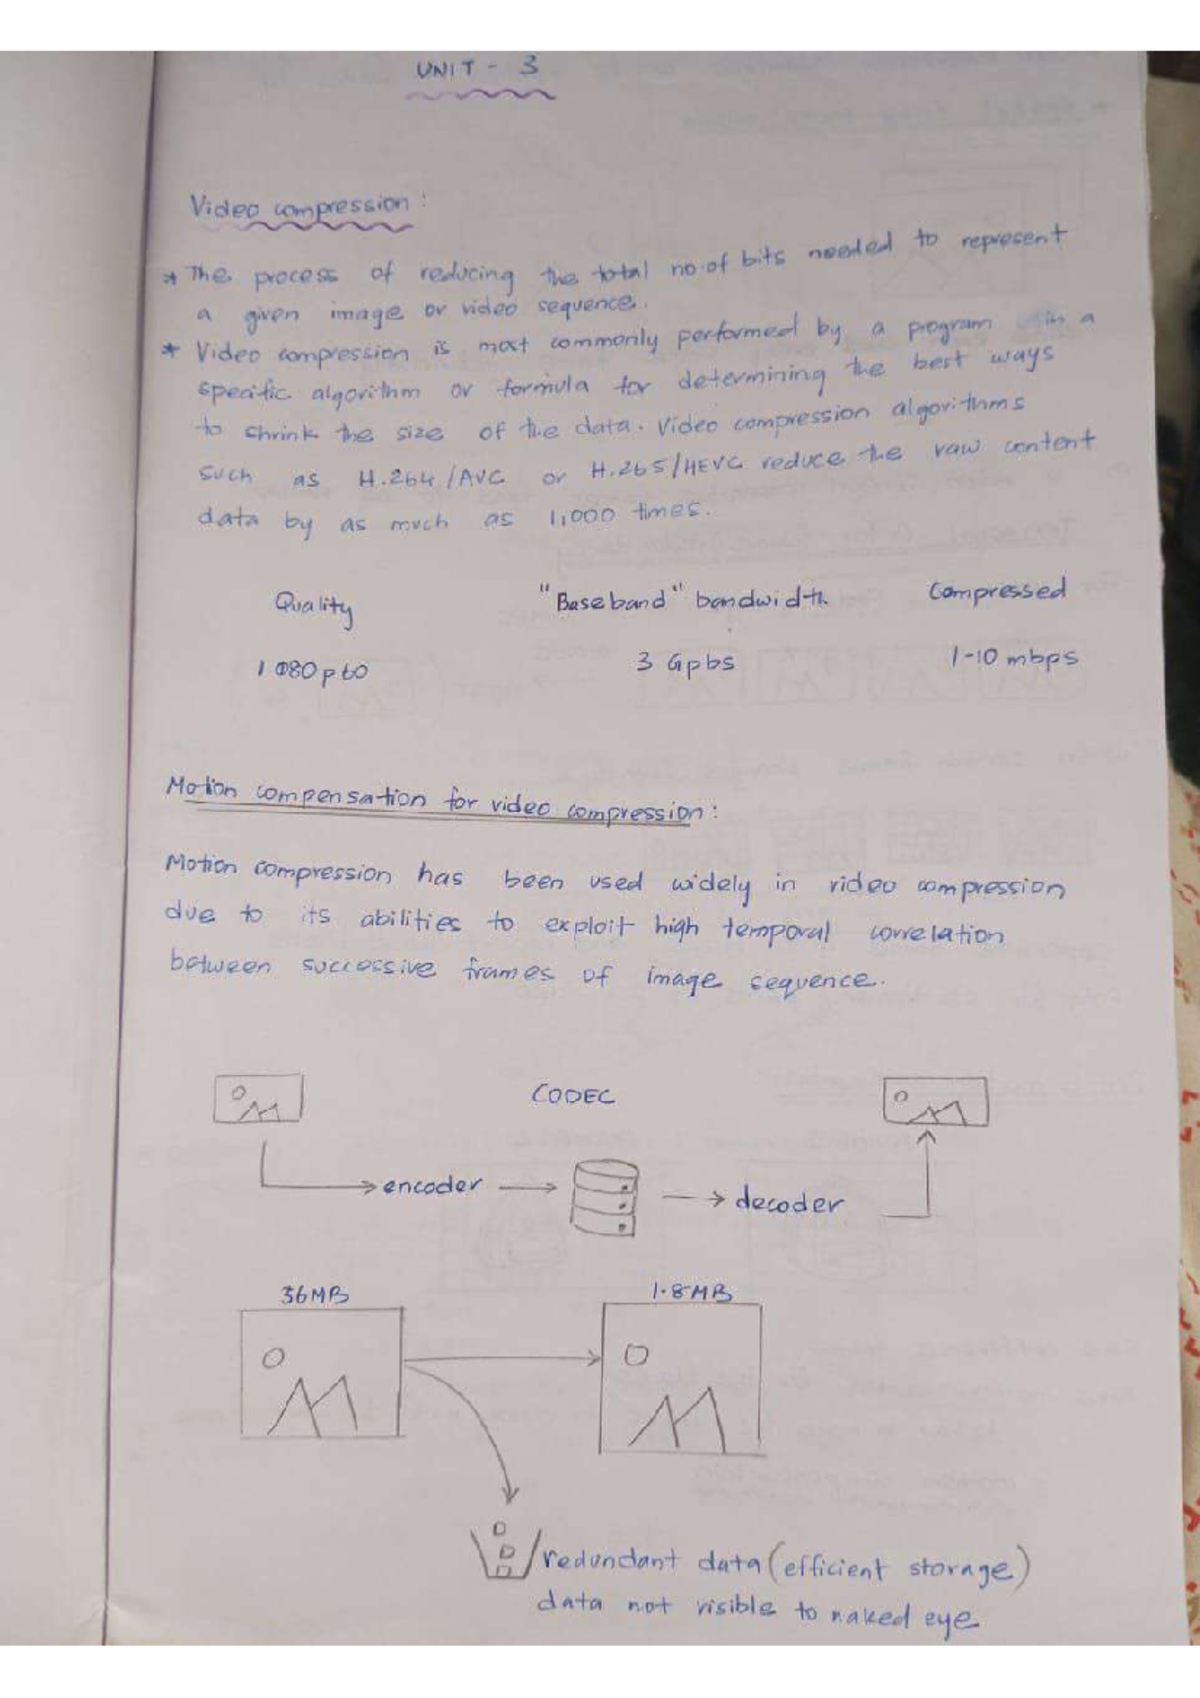 UNIT - 3
Video compression :
* The process of reducing the total no.of bits needed to represent
a given image or video sequence.
* Video compression is most commonly performed by a program in a
specific algorithm or formula for determining the best ways
to shrink the size of the data. Video compression algorithms
such as H.264/AVC or H.265/HEVC reduce the raw content
data by as much as 1,000 times.
Quality "Baseband" bandwidth Compressed
1080p60 3 Gpbs 1-10 mbps
Motion compensation for video compression :
Motion compression has been used widely in video compression
due to its abilities to exploit high temporal correlation
between successive frames of image sequence.
CODEC
encoder decoder
36MB 1.8MB
redundant data (efficient storage)
data not visible to naked eye